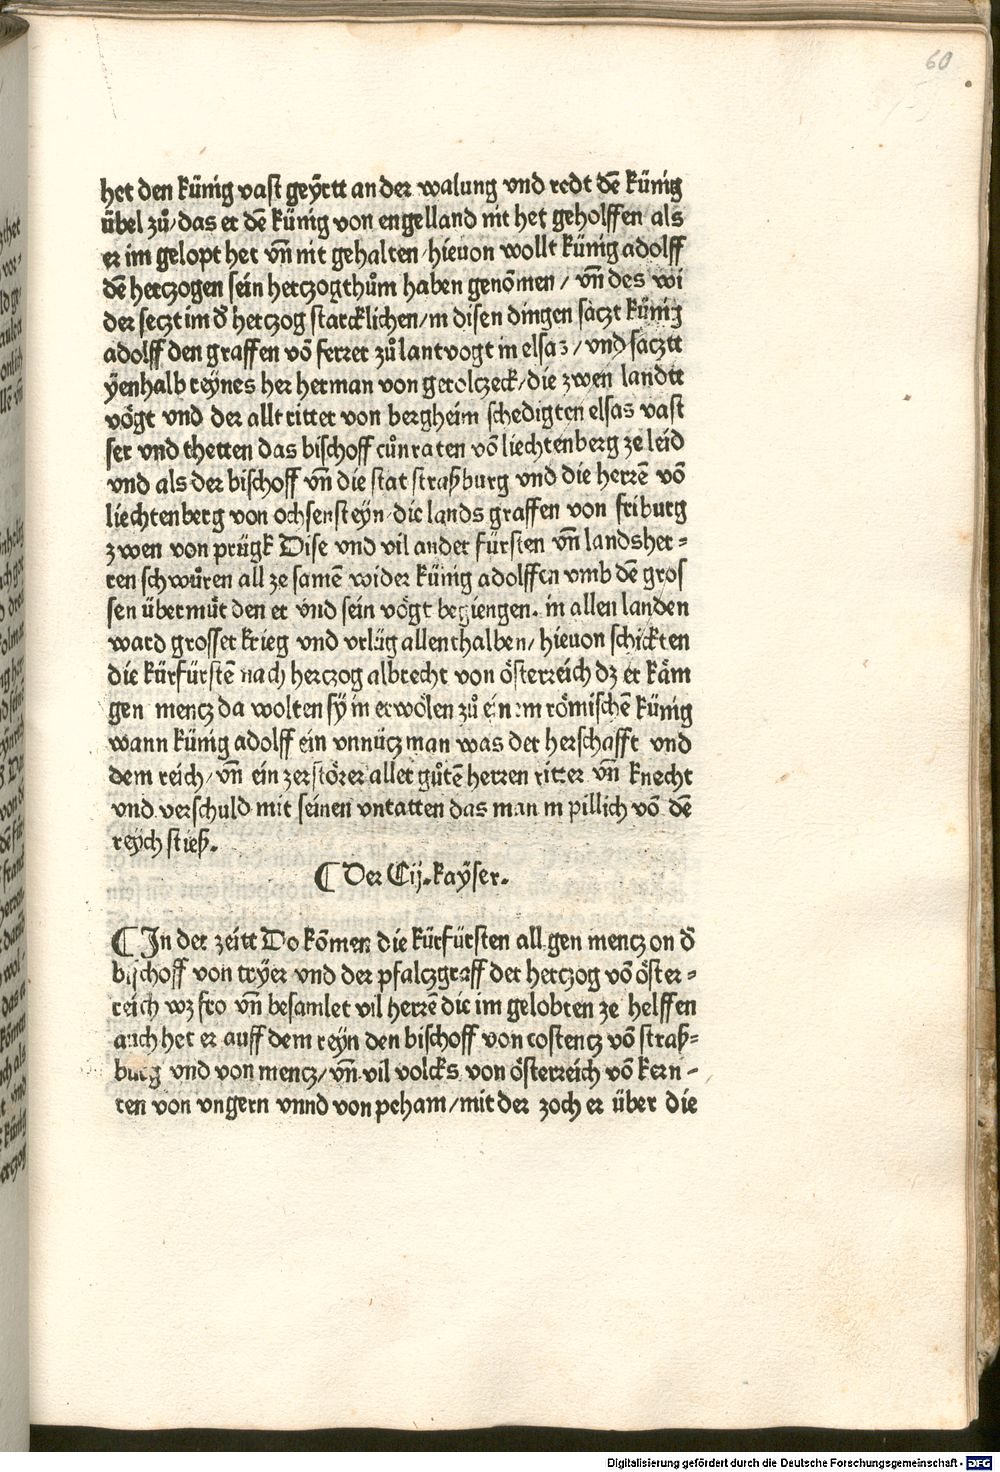 60
het den künig vast geÿrtt an der walung vnd redt dē künig
übel zů/das er dē künig von engelland nit het geholffen als
er im gelopt het vn̄ nit gehalten/hieuon wollt künig adolff
dē hertzogen sein hertzogthům haben genōmen/vn̄ des wi
der seczt im d̄ hertzog starcklichen/in disen dingen saczt künig
adolff den graffen vō ferret zů lantvogt in elsaz/vnd saczt
ÿenhalb reÿnes her herman von gerolczeck/die zwen landtt
vögt vnd der allt ritter von bergheim schedigten elsas vast
ser vnd thetten das bischoff cůnraten vō liechtenberg ze leid
vnd als der bischoff vn̄ die stat straßburg vnd die herrē vō
liechtenberg von ochsensteÿn die lands graffen von friburg
zwen von prügk Dise vnd vil ander fürsten vn̄ landsher-
ren schwůren all ze samē wider künig adolffen vmb dē gros
sen übermůt den er vnd sein vögt begiengen. in allen landen
ward grosser krieg vnd vrlüg allenthalben/hieuon schickten
die kürfürstē nach hertzog albrecht von österreich dz er käm
gen mencz da wolten sÿ in erwölen zů einem römischē künig
wann künig adolff ein vnnücz man was der herschafft vnd
dem reich/vn̄ ein zerstörer aller gůtē herren ritter vn̄ knecht
vnd verschuld mit seinen vntatten das man in pillich vō dē
reÿch stieß.
⸿ Der Cij. kaÿser.
⸿ In der zeitt Do kōmen die kürfürsten all gen mencz on d̄
bischoff von trÿer vnd der pfalczgraff der hertzog vō öster-
reich wz fro vn̄ besamlet vil herrē die im gelobten ze helffen
auch het er auff dem reÿn den bischoff von costencz vō straß-
burg vnd von mencz/vn̄ vil volcks von österreich vō kern-
ten von vngern vnnd von peham/mit der zoch er über die
Digitalisierung gefördert durch die Deutsche Forschungsgemeinschaft - DFG